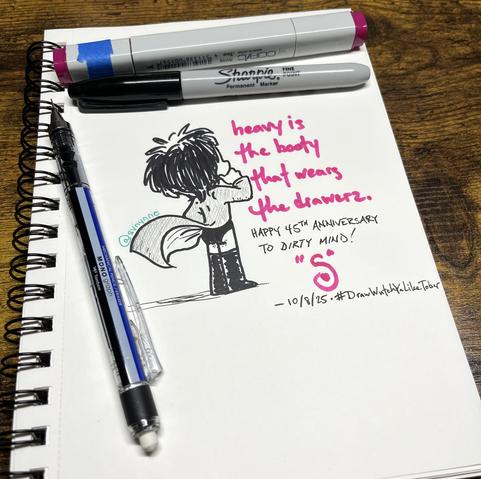 COPIC
Sharpie. FINE POINT
Permanent Marker
MONO graph
heavy is
the booty
that wears
the drawerz.
HAPPY 45TH ANNIVERSARY
TO DIRTY MIND!
"S"
— 10/8/25 · #DrawWatchYaLikeTober